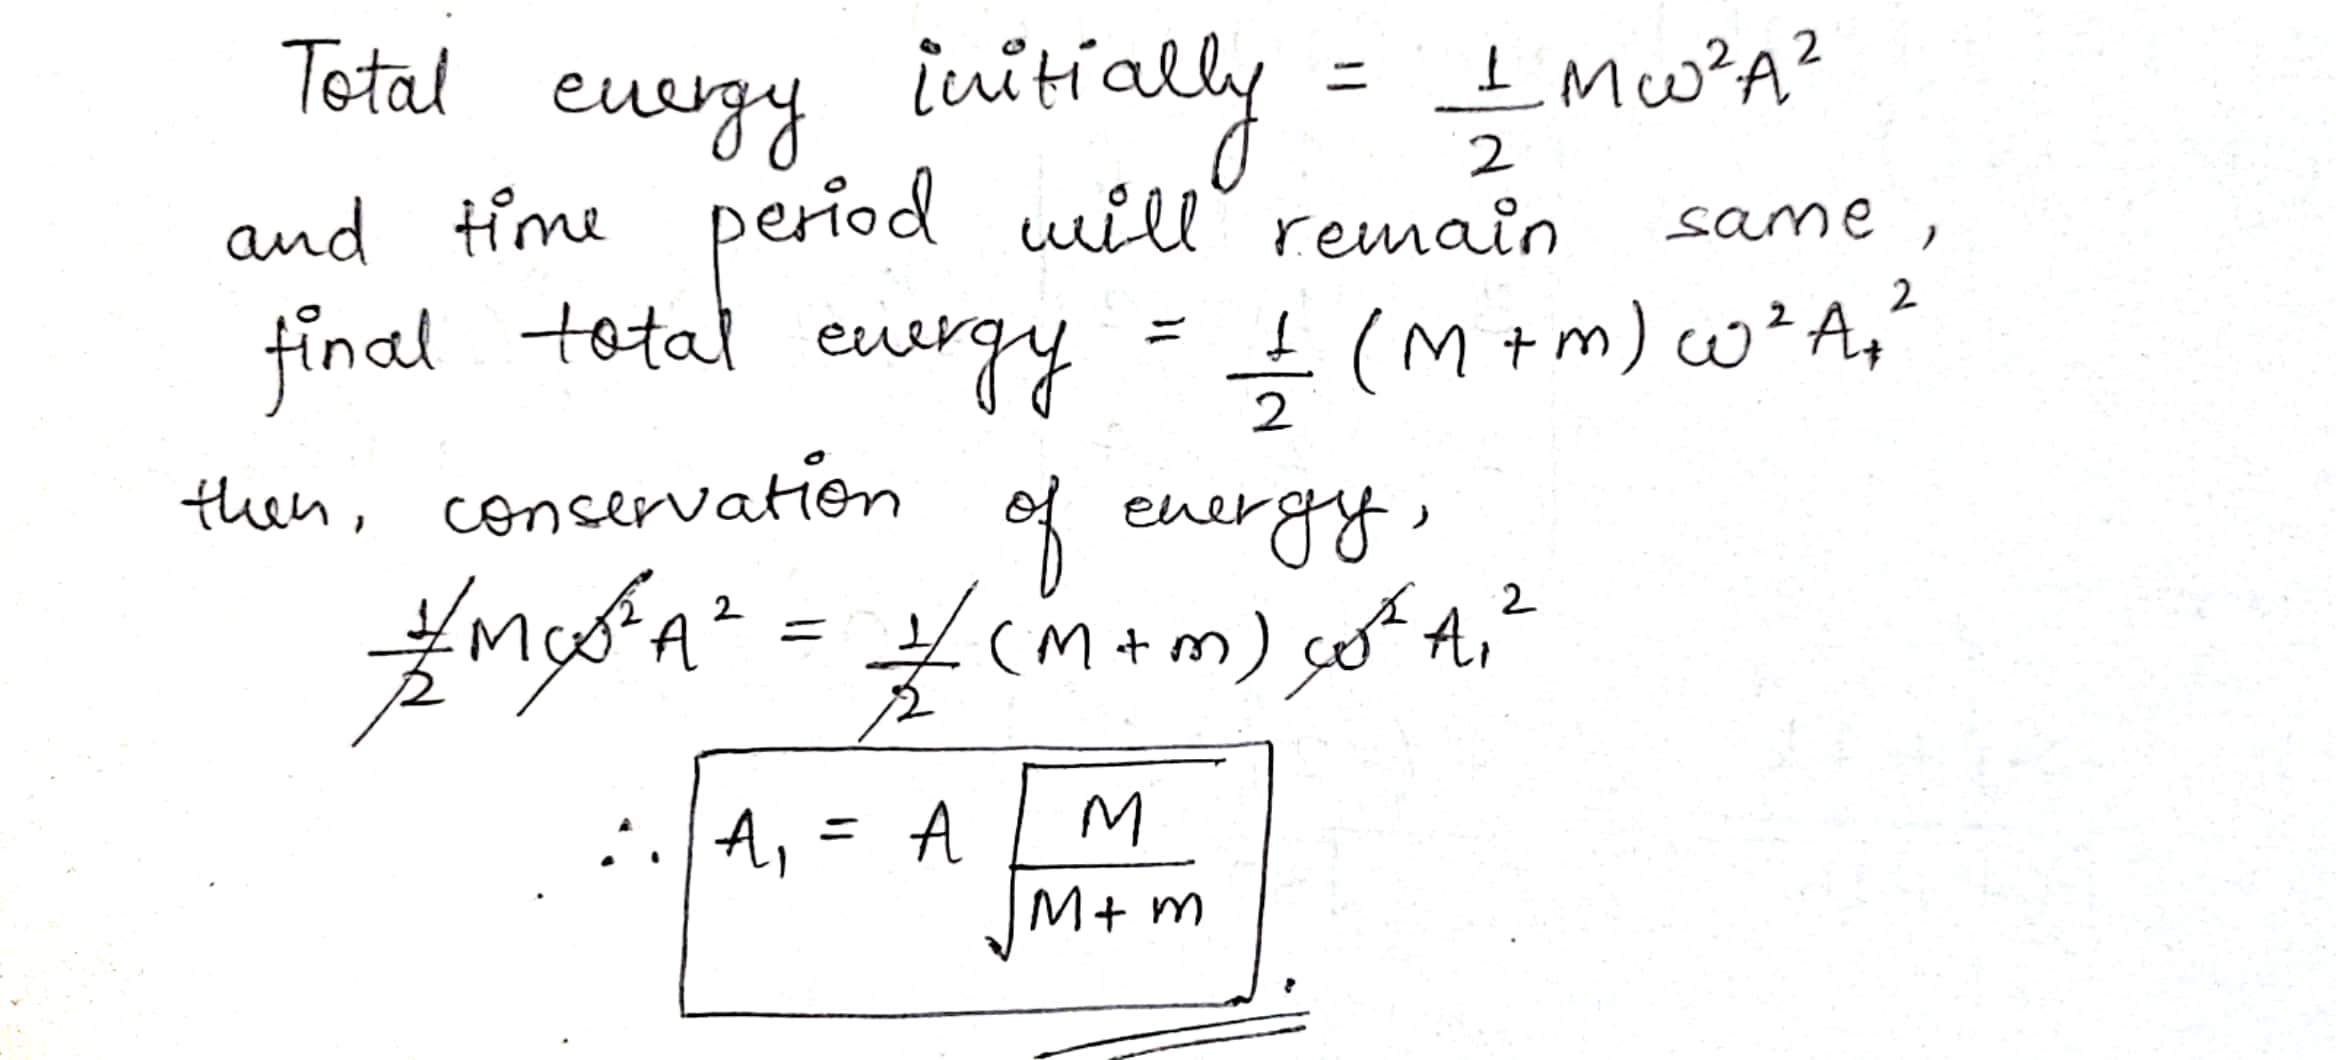 Total energy initially = 1/2 Mω²A²
and time period will remain same,
final total energy = 1/2 (M+m) ω²A₁²
then, conservation of energy,
1/2 Mω²A² = 1/2 (M+m) ω²A₁²
∴ A₁ = A √(M/(M+m)).